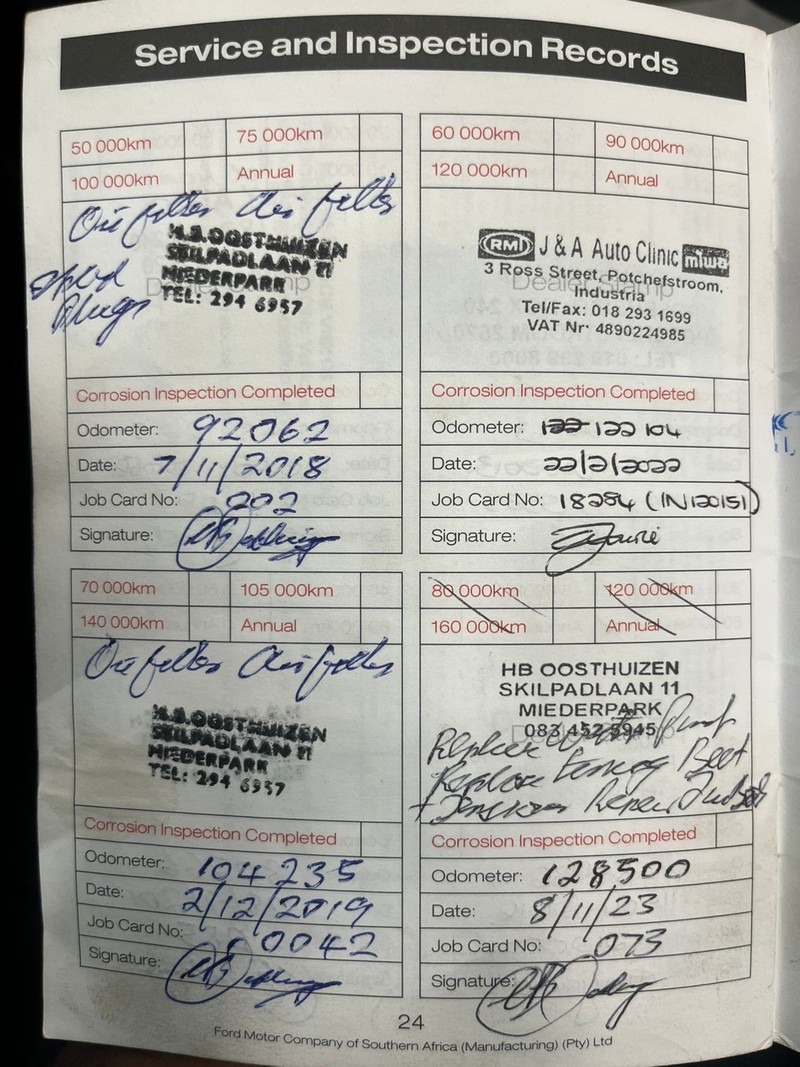 Service and Inspection Records
50 000km 75 000km
100 000km Annual
Oil filter Air filter
H.B.OOSTHUIZEN
SKILPADLAAN 11
MIEDERPARK
TEL: 294 6957
plugs
Corrosion Inspection Completed
Odometer: 92062
Date: 7/11/2018
Job Card No: 202
Signature:
60 000km 90 000km
120 000km Annual
RMI J & A Auto Clinic miwa
3 Ross Street, Potchefstroom,
Dealer Stamp
Industria
Tel/Fax: 018 293 1699
VAT Nr: 4890224985
Corrosion Inspection Completed
Odometer: 122 104
Date: 22/2/2022
Job Card No: 18284 (IN120151)
Signature:
70 000km 105 000km
140 000km Annual
Oil filter Air filter
H.B.OOSTHUIZEN
SKILPADLAAN 11
MIEDERPARK
TEL: 294 6957
Corrosion Inspection Completed
Odometer: 104235
Date: 2/12/2019
Job Card No: 0042
Signature:
80 000km 120 000km
160 000km Annual
HB OOSTHUIZEN
SKILPADLAAN 11
MIEDERPARK
083 452 5945
Replace Water Pump
Replace Belt
+ Repair
Corrosion Inspection Completed
Odometer: 128500
Date: 8/11/23
Job Card No: 073
Signature:
24
Ford Motor Company of Southern Africa (Manufacturing) (Pty) Ltd